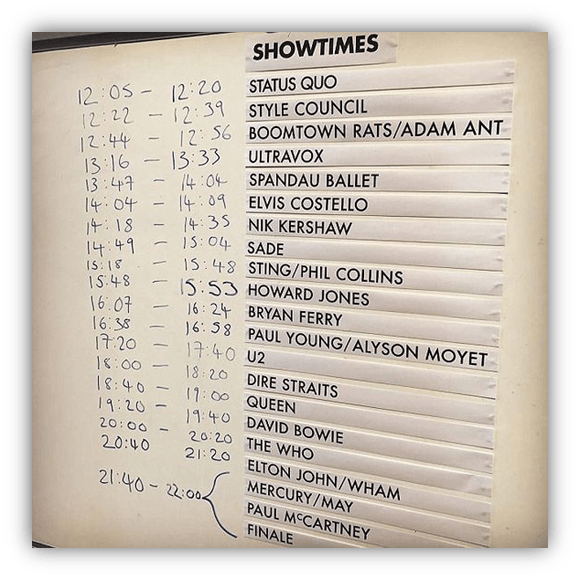 SHOWTIMES
12:05 – 12:20 STATUS QUO
12:22 – 12:39 STYLE COUNCIL
12:44 – 12:56 BOOMTOWN RATS/ADAM ANT
13:16 – 13:33 ULTRAVOX
13:47 – 14:04 SPANDAU BALLET
14:04 – 14:09 ELVIS COSTELLO
14:18 – 14:35 NIK KERSHAW
14:49 – 15:04 SADE
15:18 – 15:48 STING/PHIL COLLINS
15:48 – 15:53 HOWARD JONES
16:07 – 16:24 BRYAN FERRY
16:38 – 16:58 PAUL YOUNG/ALYSON MOYET
17:20 – 17:40 U2
18:00 – 18:20 DIRE STRAITS
18:40 – 19:00 QUEEN
19:20 – 19:40 DAVID BOWIE
20:00 – 20:20 THE WHO
20:40 21:20 ELTON JOHN/WHAM
21:40 – 22:00 MERCURY/MAY
PAUL McCARTNEY
FINALE